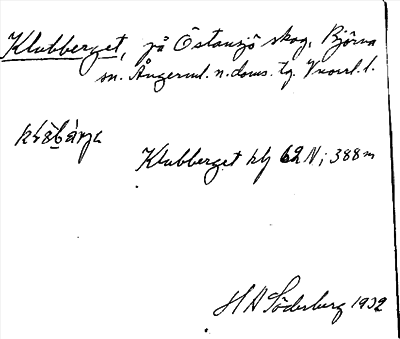 Klubberget, på Östansjö skog, Björna
sn. Ångerml. n. doms. tg. Vnorrl. l.
Klubberget blj 62 N; 388 m
H A Söderberg 1932